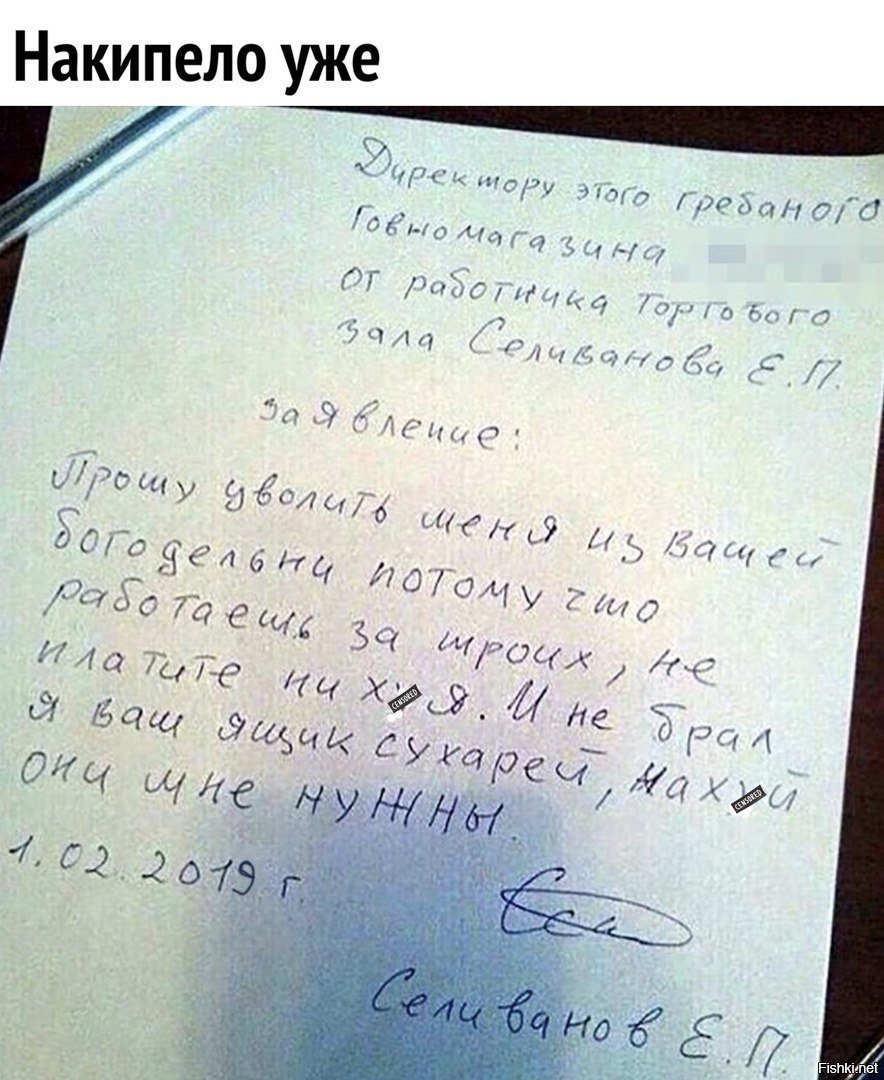 Накипело уже
Директору этого гребаного
Говномагазина
от работника Торгового
зала Селиванова Е.П.
заявление:
Прошу уволить меня из вашей
богодельни потому что
работаешь за троих, не
платите ни х я. И не брал
я ваш ящик сухарей, нах й
они мне нужны.
1.02.2019 г.
Селиванов Е.П.
CENSORED
CENSORED
Fishki.net